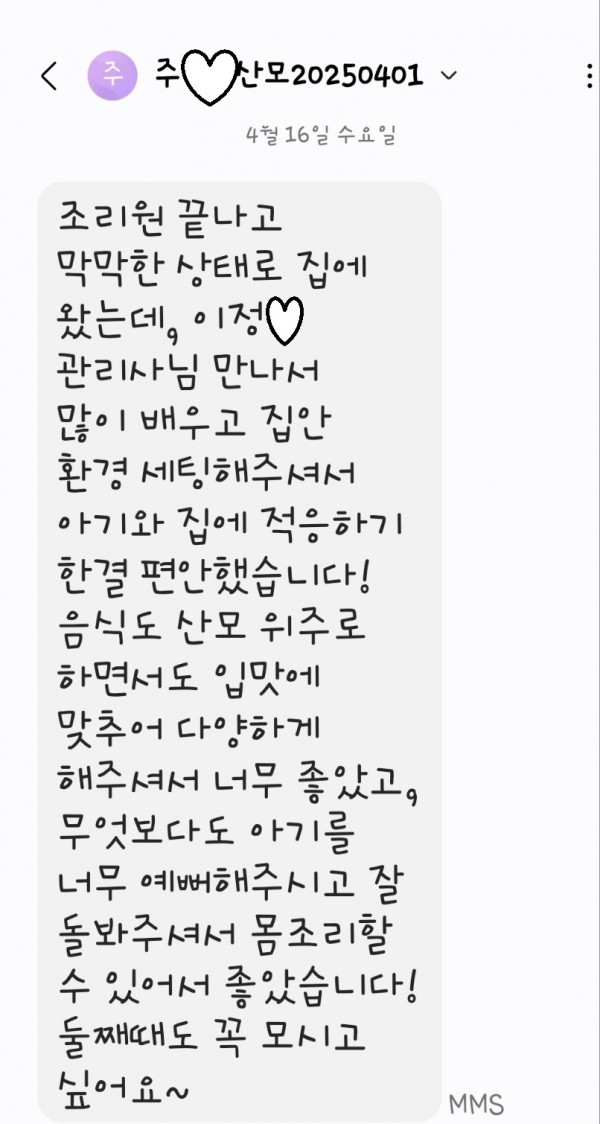 주
주♡산모20250401
4월 16일 수요일
조리원 끝나고
막막한 상태로 집에
왔는데, 이정♡
관리사님 만나서
많이 배우고 집안
환경 세팅해주셔서
아기와 집에 적응하기
한결 편안했습니다!
음식도 산모 위주로
하면서도 입맛에
맞추어 다양하게
해주셔서 너무 좋았고,
무엇보다도 아기를
너무 예뻐해주시고 잘
돌봐주셔서 몸조리할
수 있어서 좋았습니다!
둘째때도 꼭 모시고
싶어요~
MMS